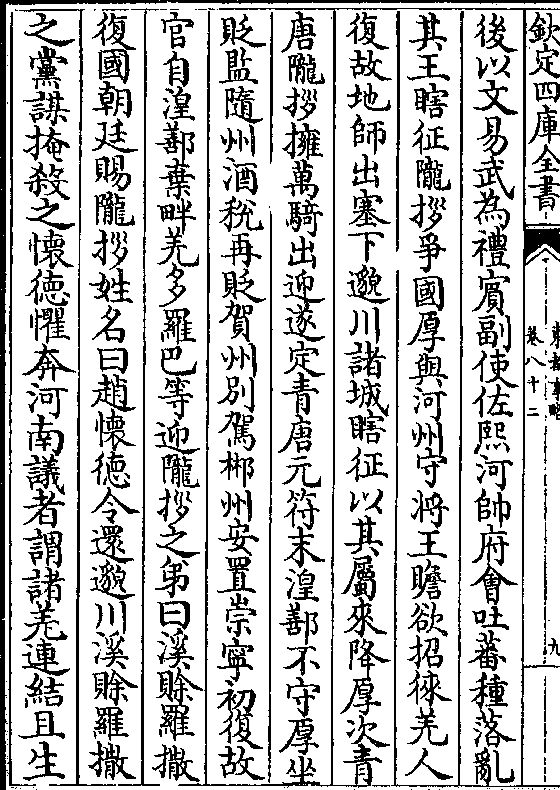 欽定四庫全書
卷八十二
九
後以文易武為禮賓副使佐熙河帥府會吐蕃種落亂
其王瞎征隴拶爭國厚與河州守將王瞻欲招徠羌人
復故地師出塞下邈川諸城瞎征以其屬來降厚次青
唐隴拶擁萬騎出迎遂定青唐元符末湟鄯不守厚坐
貶監隨州酒稅再貶賀州別駕郴州安置崇寧初復故
官自湟鄯棄畔羌多羅巴等迎隴拶之弟曰溪賒羅撒
復國朝廷賜隴拶姓名曰趙懷德令還邈川溪賒羅撒
之黨謀掩殺之懷德懼奔河南議者謂諸羌連結且生